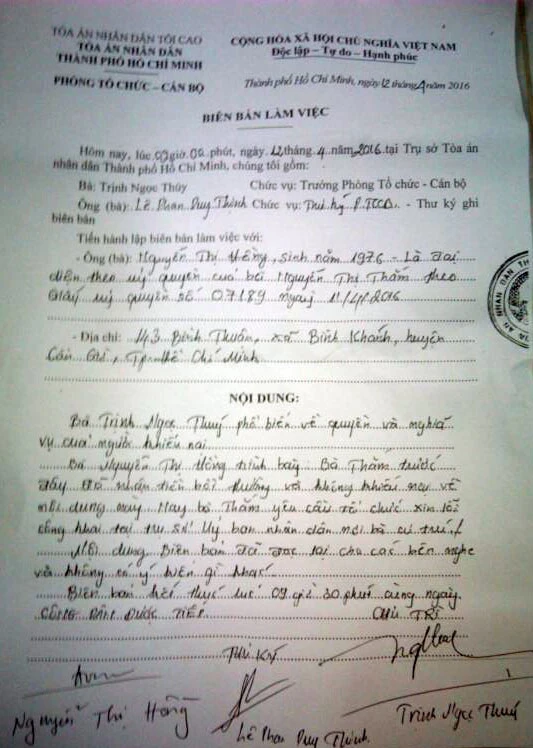 TÒA ÁN NHÂN DÂN TỐI CAO
TÒA ÁN NHÂN DÂN
THÀNH PHỐ HỒ CHÍ MINH
PHÒNG TỔ CHỨC – CÁN BỘ
CỘNG HÒA XÃ HỘI CHỦ NGHĨA VIỆT NAM
Độc lập – Tự do – Hạnh phúc
Thành phố Hồ Chí Minh, ngày 12 tháng 4 năm 2016
BIÊN BẢN LÀM VIỆC
Hôm nay, lúc 09 giờ 00 phút, ngày 12 tháng 4 năm 2016 tại Trụ sở Tòa án
nhân dân Thành phố Hồ Chí Minh, chúng tôi gồm:
Bà: Trịnh Ngọc Thúy Chức vụ: Trưởng Phòng Tổ chức - Cán bộ
Ông (bà): Lê Phan Duy Thịnh Chức vụ: Thư ký P.TCCB - Thư ký ghi
biên bản
Tiến hành lập biên bản làm việc với:
- Ông (bà): Nguyễn Thị Hồng, sinh năm 1976 - Là đại
diện theo uỷ quyền của bà Nguyễn Thị Thắm theo
Giấy uỷ quyền số 07189 ngày 11/4/2016
- Địa chỉ: 143 Bình Thuận, xã Bình Khánh, huyện
Cần Giờ, Tp. Hồ Chí Minh
NỘI DUNG:
Bà Trịnh Ngọc Thuý phổ biến về quyền và nghĩa
vụ của người khiếu nại
Bà Nguyễn Thị Hồng trình bày: Bà Thắm trước
đây đã nhận tiền bồi thường và không khiếu nại về
nội dung này. Nay bà Thắm yêu cầu tổ chức xin lỗi
công khai tại trụ sở Uỷ ban nhân dân nơi bà cư trú./
Nội dung Biên bản đã đọc lại cho các bên nghe
và không có ý kiến gì khác.
Biên bản kết thúc lúc 09 giờ 30 phút cùng ngày
CÔNG DÂN ĐƯỢC TIẾP CHỦ TRÌ
THƯ KÝ
Nguyễn Thị Hồng Lê Phan Duy Thịnh Trịnh Ngọc Thuý